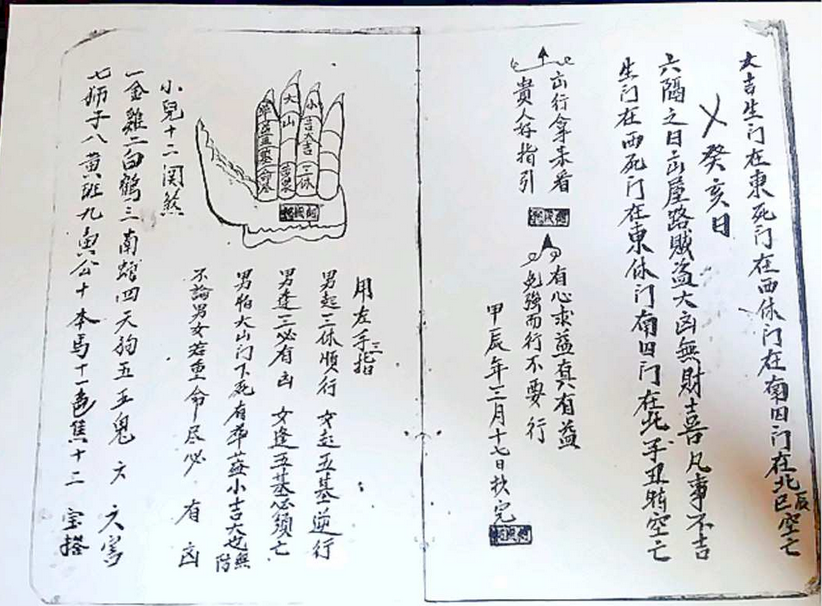 大吉生门在東死门在西休门在南囚门在北辰巳空亡
癸亥日
六隔之日出屋路贼盗大凶無財喜凡事不吉
生门在西死门在東休门南囚门在北子丑時空亡
出行拿来看
貴人好指引
有心求益真有益
免強而行不要行
甲辰年三月十七日抄完
小吉大吉三休
大山
用左手三指
男起三休順行 女起五基逆行
男逢三必有凶 女逢五基必須亡
男怕大山门下死有華蓋小吉大也無防
不論男女若重命尽必有凶
小兒十二関煞
一金雞二白鶴三南蛇四天狗五五鬼六
七狮子八黄班九魚公十本馬十一 十二宝搭